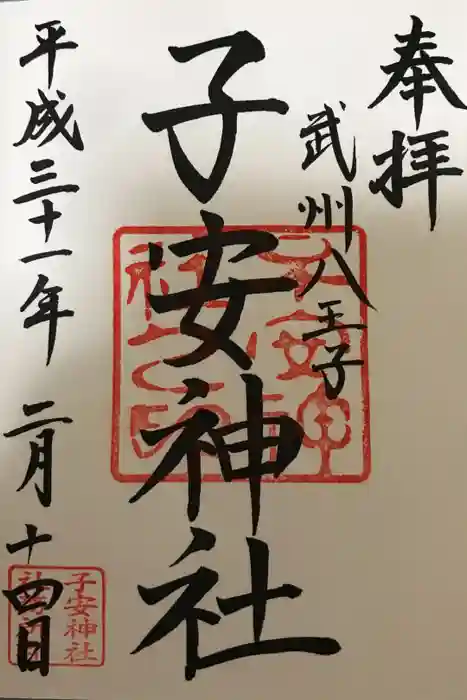 奉拝
武州八王子
子安神社
平成三十一年二月十四日
子安神社